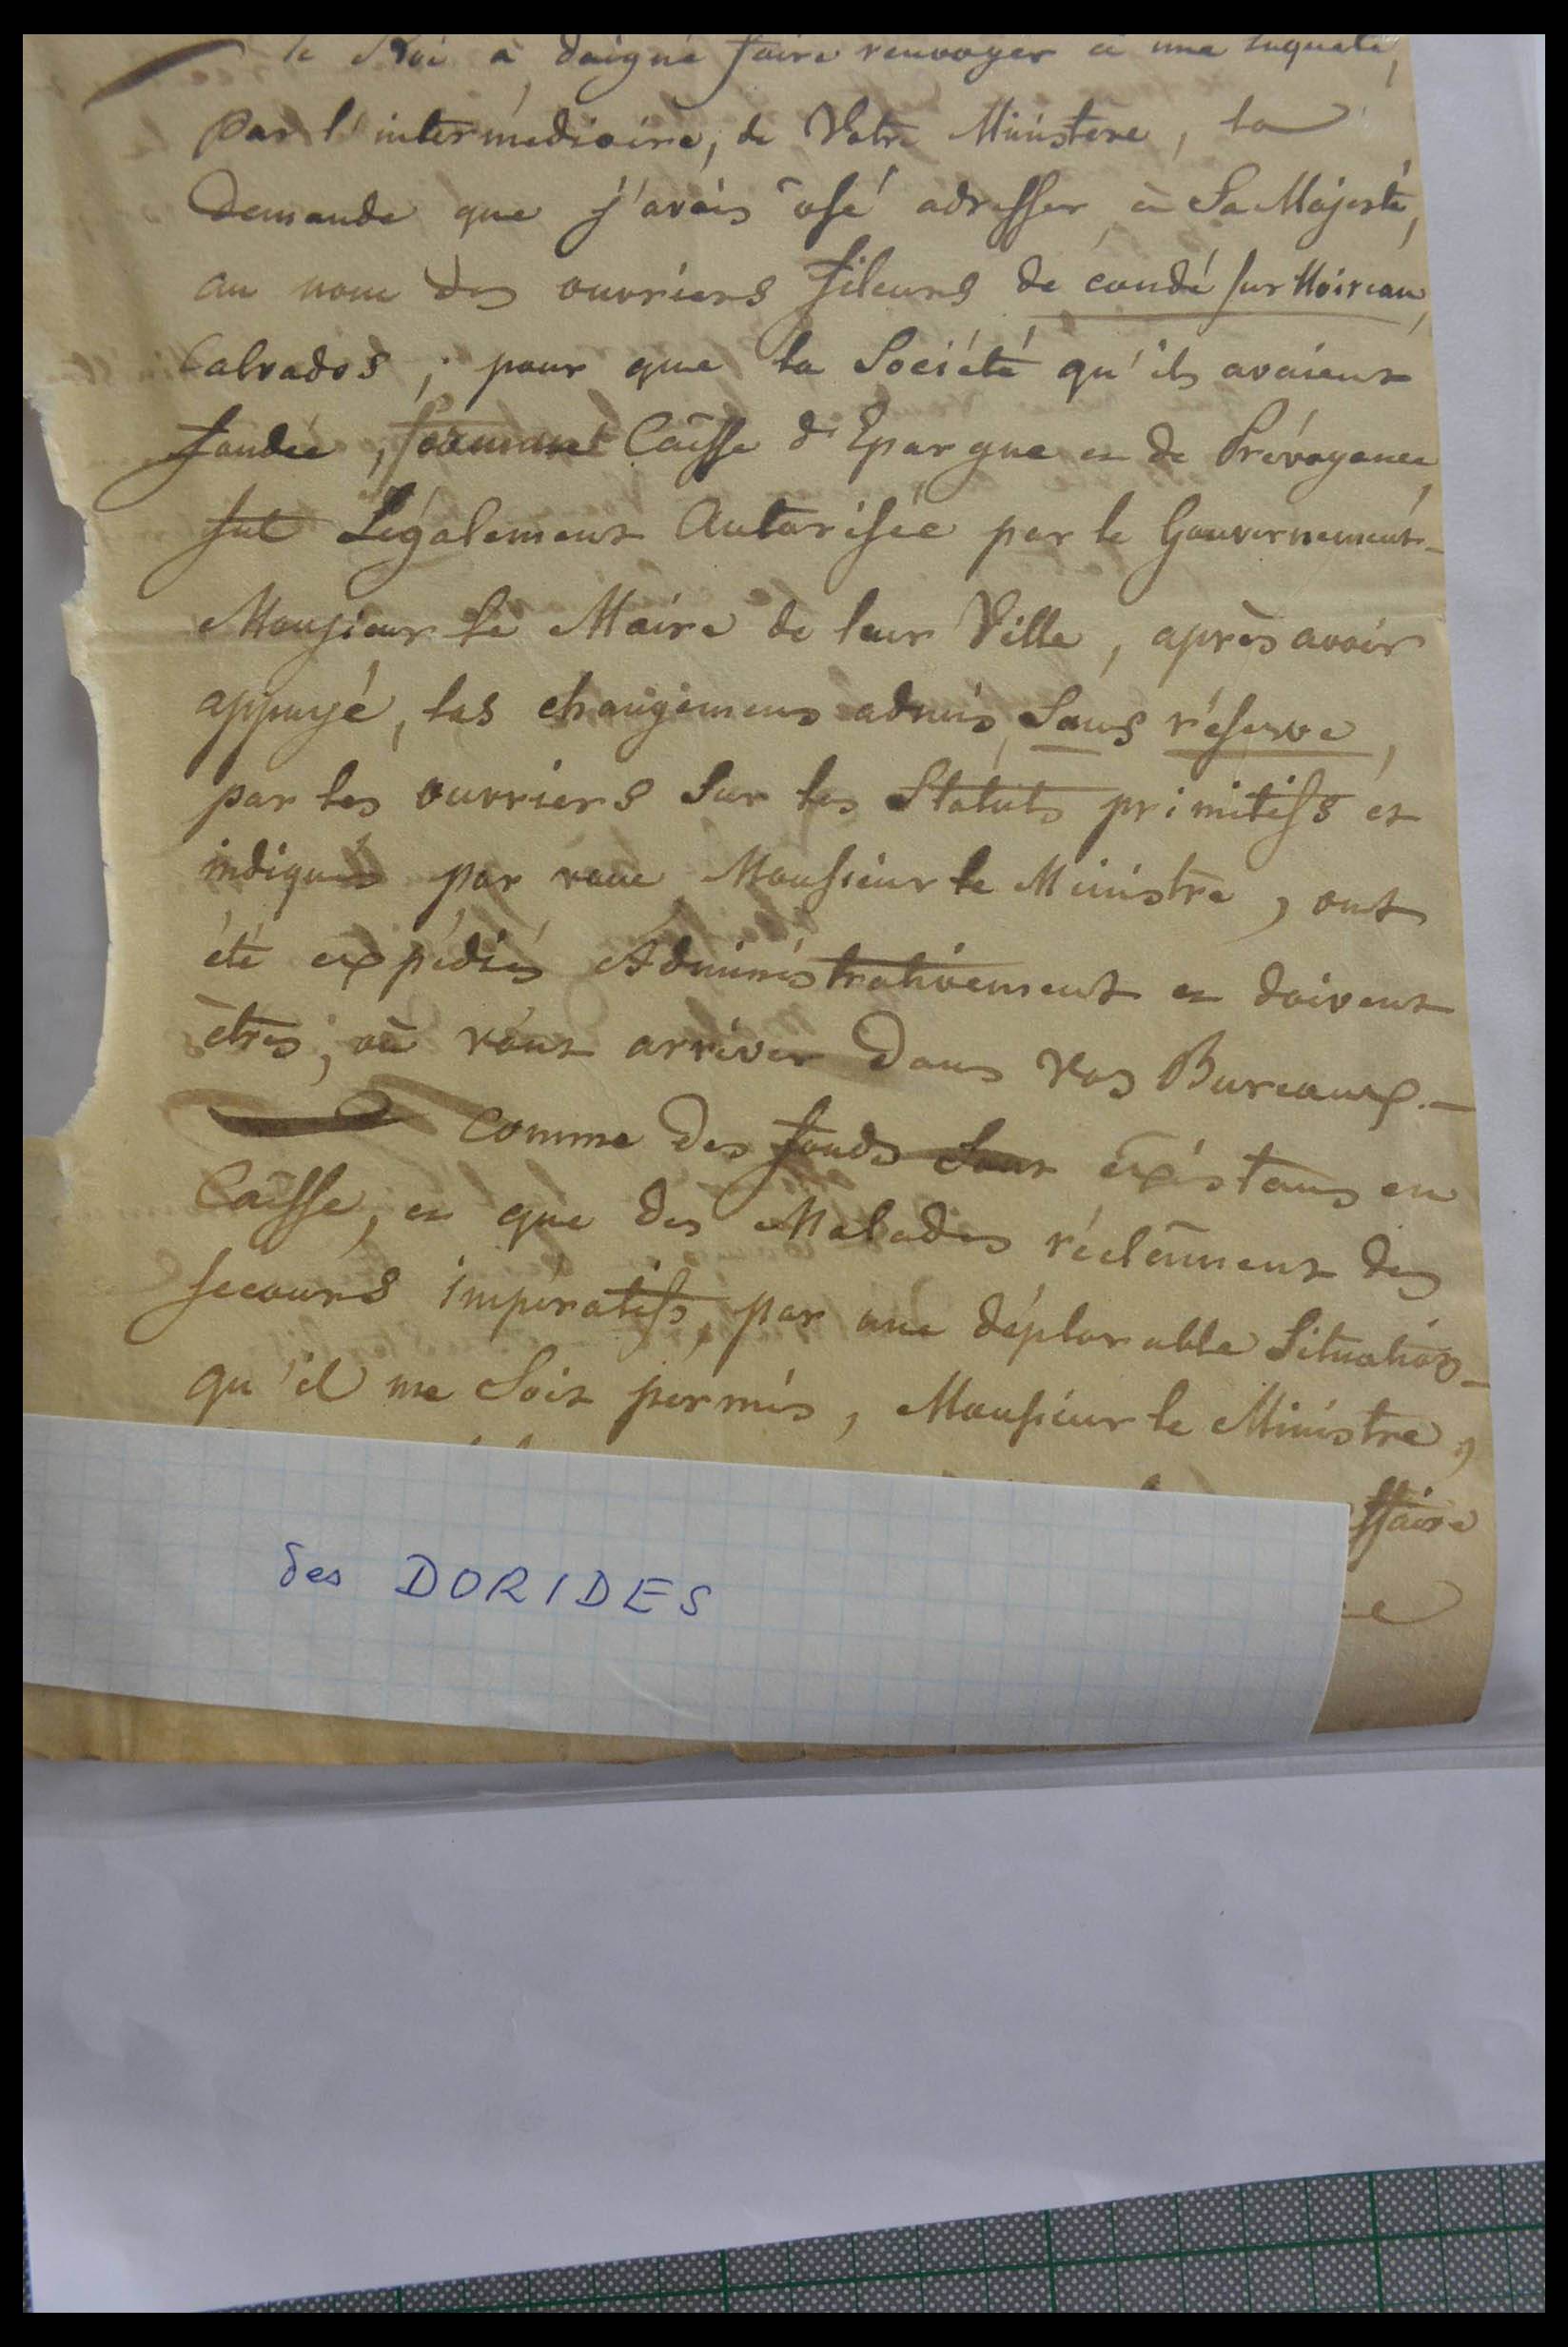 le Roi a daigné faire renvoyer à une enquete,
par l'intermédiaire, de Votre Ministere, la
Demande que j'avais osé adresser à Sa Majesté,
au nom des ouvriers fileurs de condé sur Noireau,
Calvados, pour que la Société qu'ils avaient
fondée, formant Caisse d'Epargne et de Prévoyance,
fut Légalement Autorisée par le Gouvernement_
Monsieur le Maire de leur Ville, après avoir
appuyé, les changemens admis, Sans réserve,
par les ouvriers Sur les Statuts primitifs et
indiqués par vous Monsieur le Ministre, ont
été expédiés Administrativement et doivent
êtres, où vont arriver Dans vos Bureaux._
Comme Des fonds Sont existans en
Caisse, et que des Malades réclâment des
secours impératifs, par une déplorable Situation_
qu'il me Soit permis, Monsieur le Ministre,
ffaire
des DORIDES